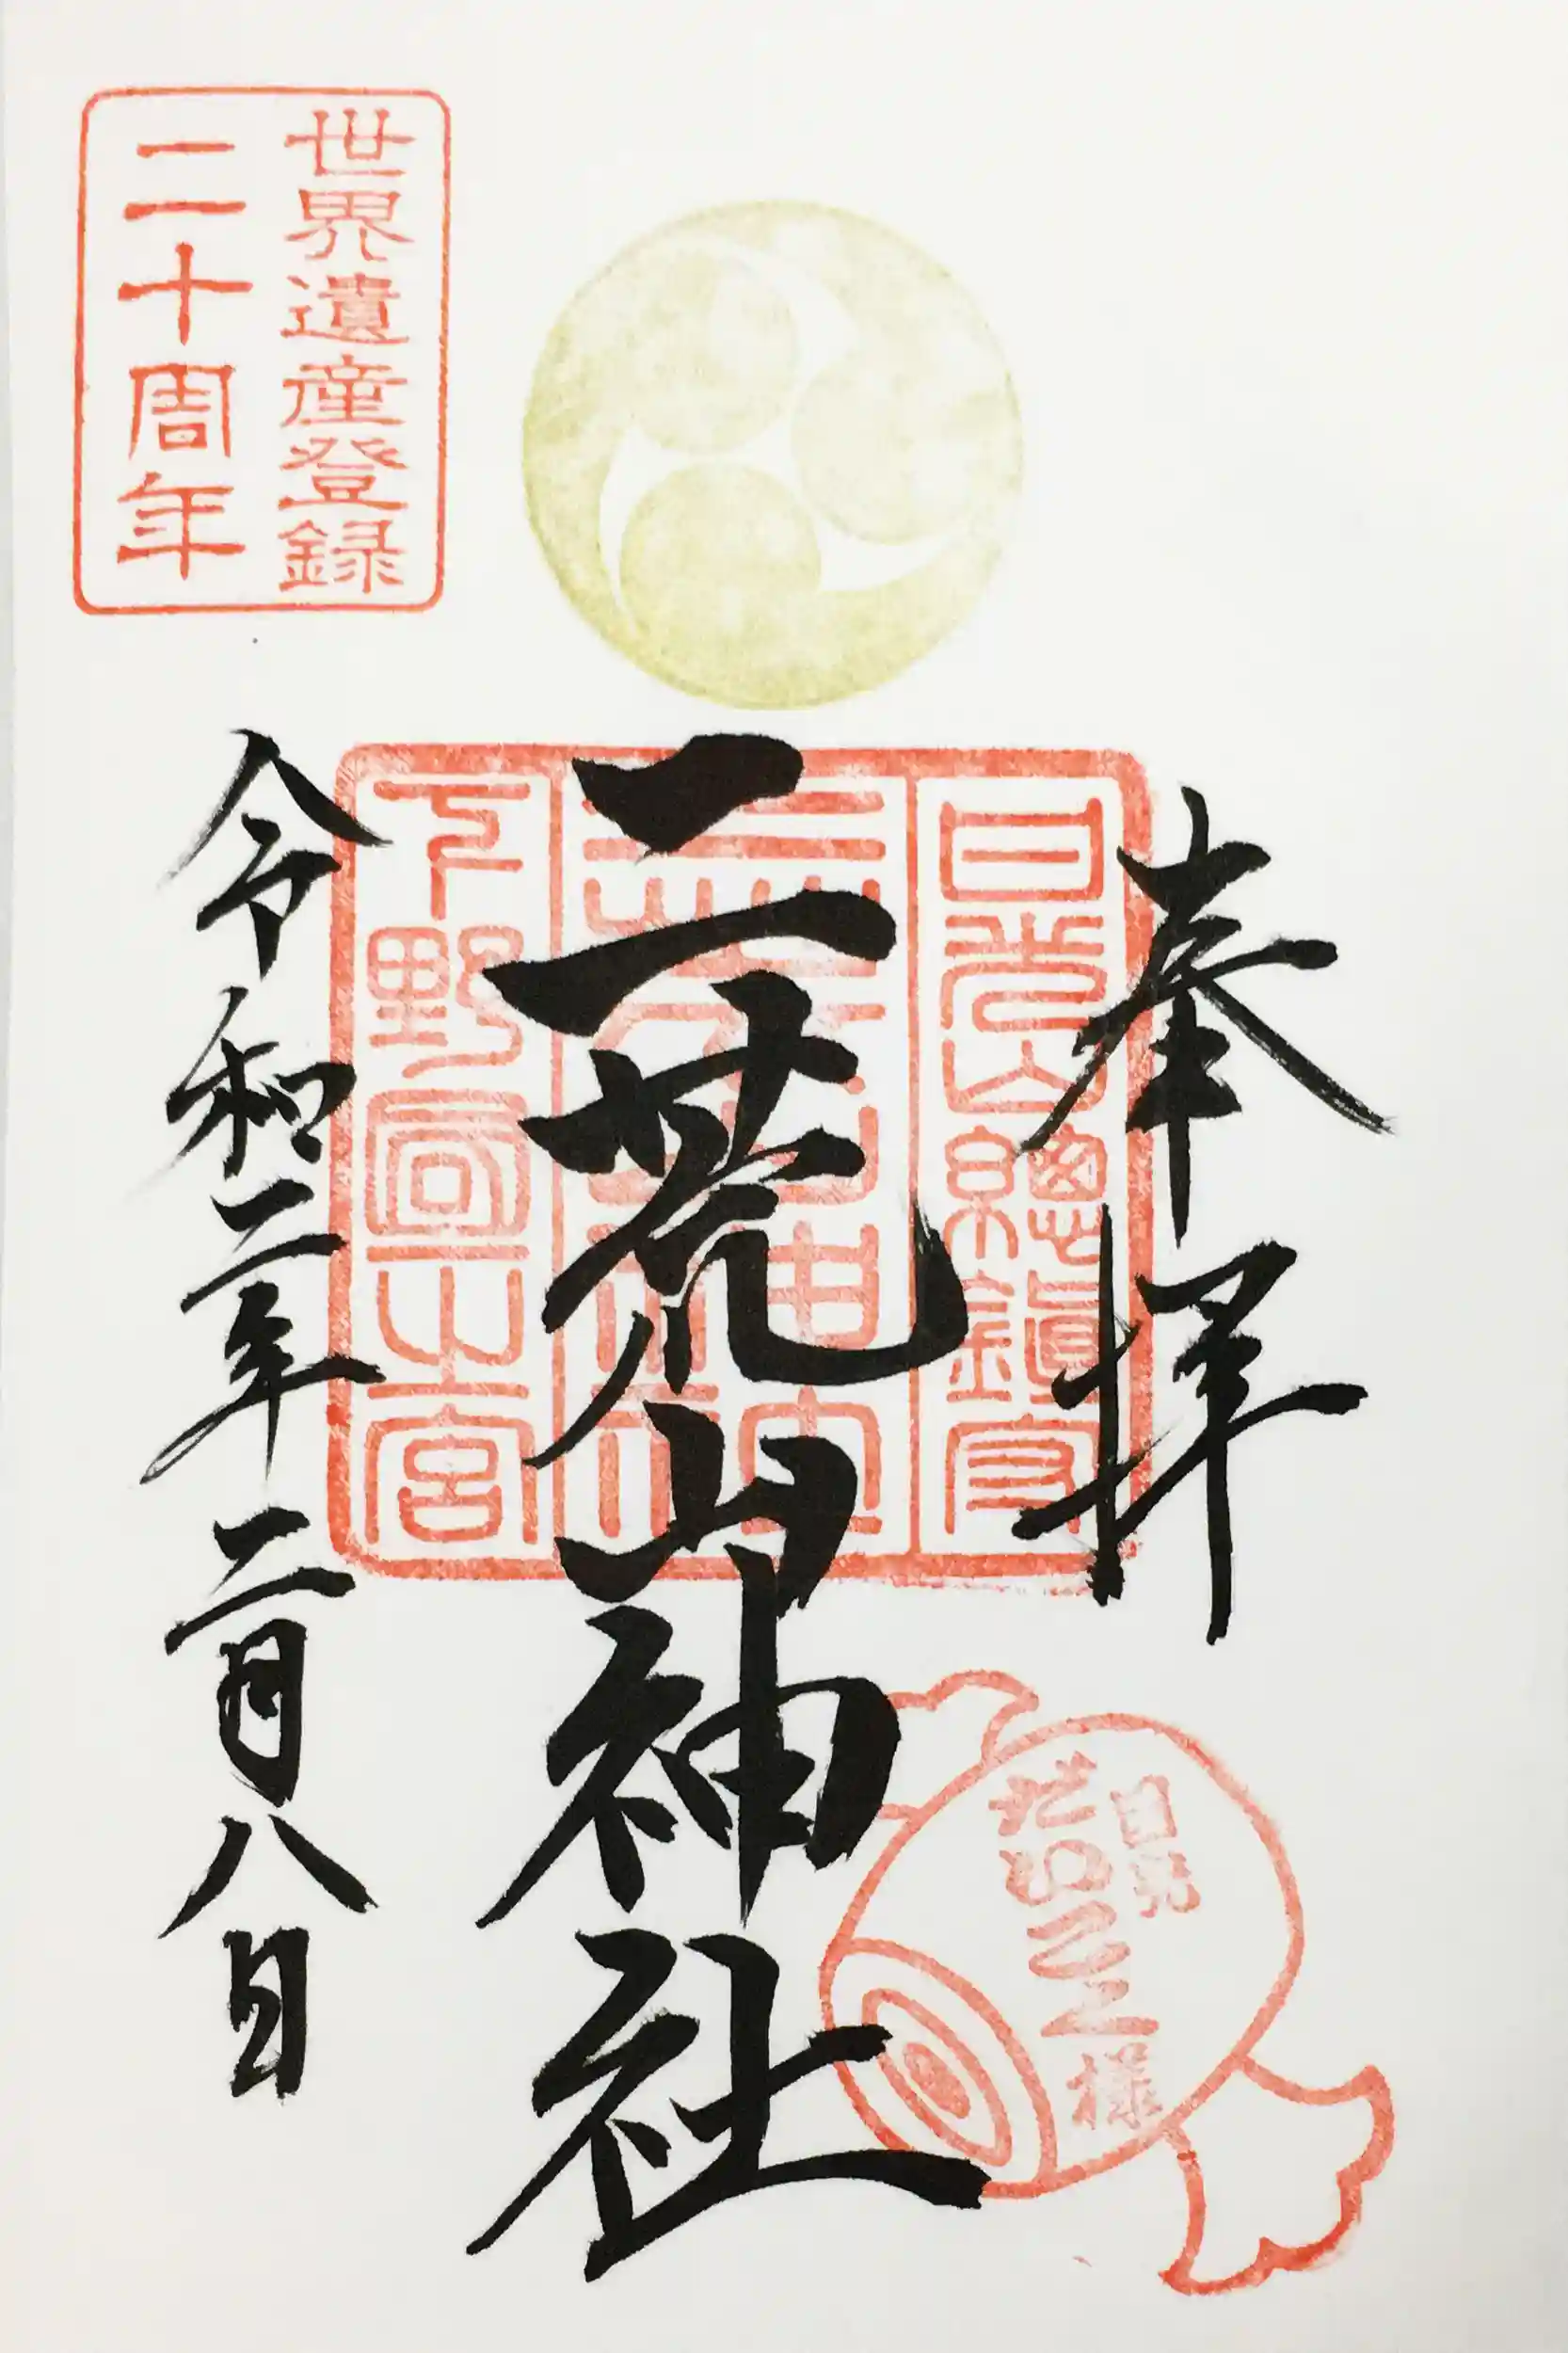 奉拝
日光山總鎮守
二荒山神社
下野國一之宮
令和二年二月八日
世界遺産登録
二十周年
日光
様